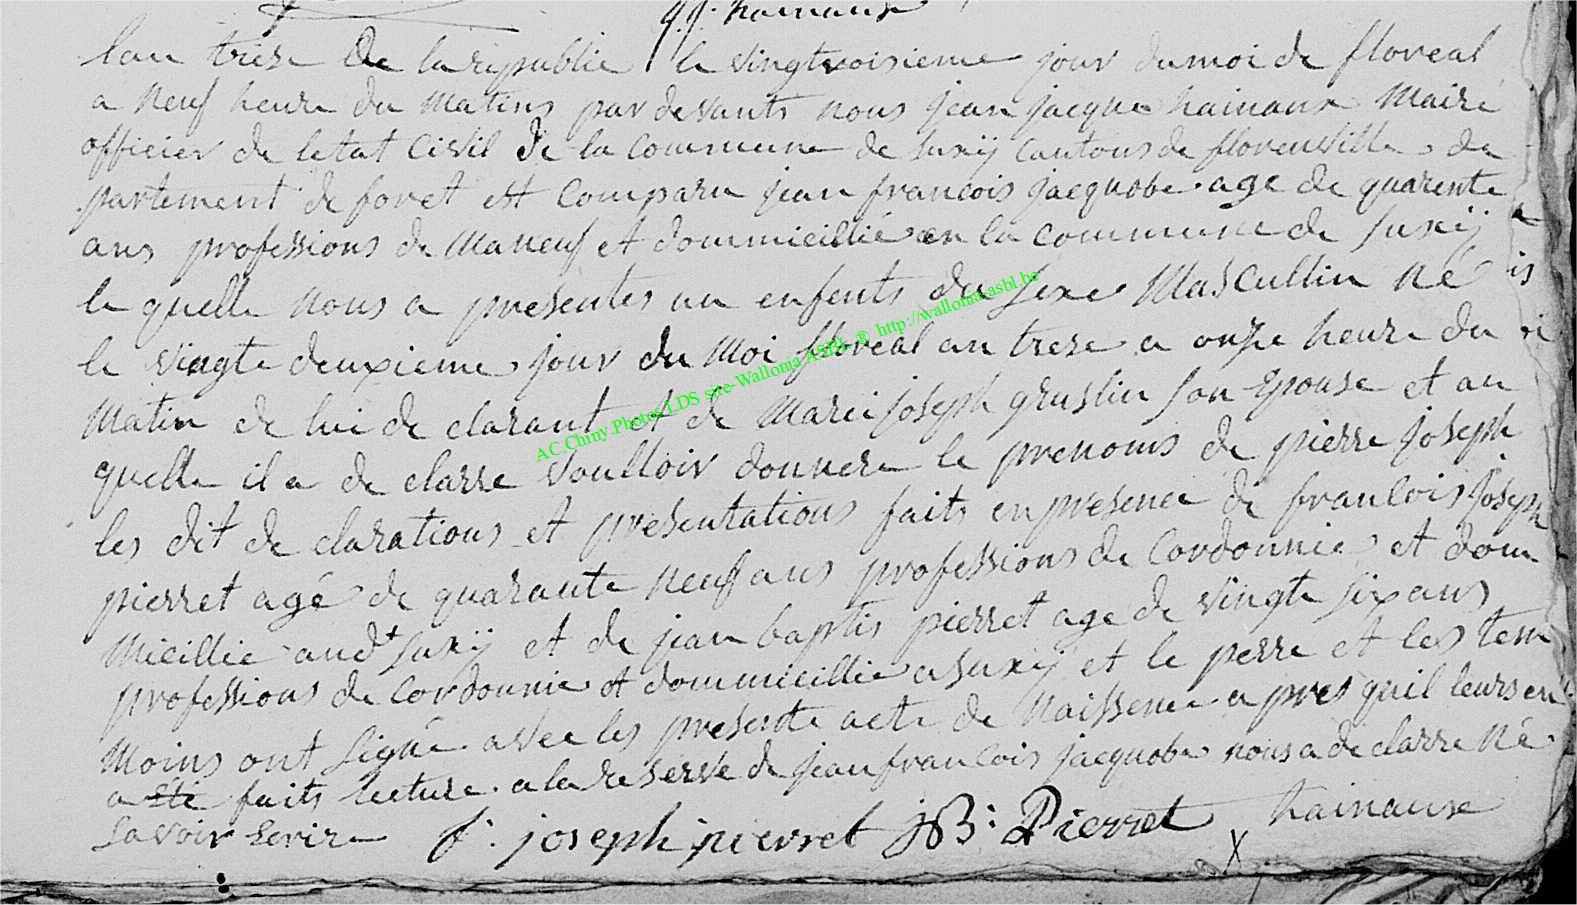 j.j. hainaux
lan treze de la republie le vingtroisieme jour dumoi de floreal
a neuf heure du matins par devants nous jean jacque hainaux maire
officier de letat civil de la commune de Suxÿ cantons de florenville de
partement de foret est comparu jean francois jacquobe age de quarente
ans professions de maneuf et dommicillié en la commune de Suxÿ
le quelle nous a presentes un enfents du sexe masCullin né
le vingte deuxieme jour du moi floreal an treze a onze heure du
matin de lui de clarant et de marei joseph gruslin son epouse et au
quelle il a de clarre voulloir donnere le prenoms de pierre joseph
les dit de clarations et presentations faits en presence de francois joseph
pierret agé de quarante neuf ans professions de Cordonnie et dom
micillie audt Suxÿ et de jean baptis pierret age de vingte six ans
professions de cordonnie et dommicillie a Suxÿ et le perre et les tem
moins ont signé avec les presente acte de naissence a pres quil leurs en
a été faits lecture a la reserve de jean francois jacquobe nous a de clarre né
savoir Scrire f: joseph pierret JB: Pierret hainaux
x
AC.Chiny.Photos LDS site-Walloma ASBL ® http://walloma.asbl.be